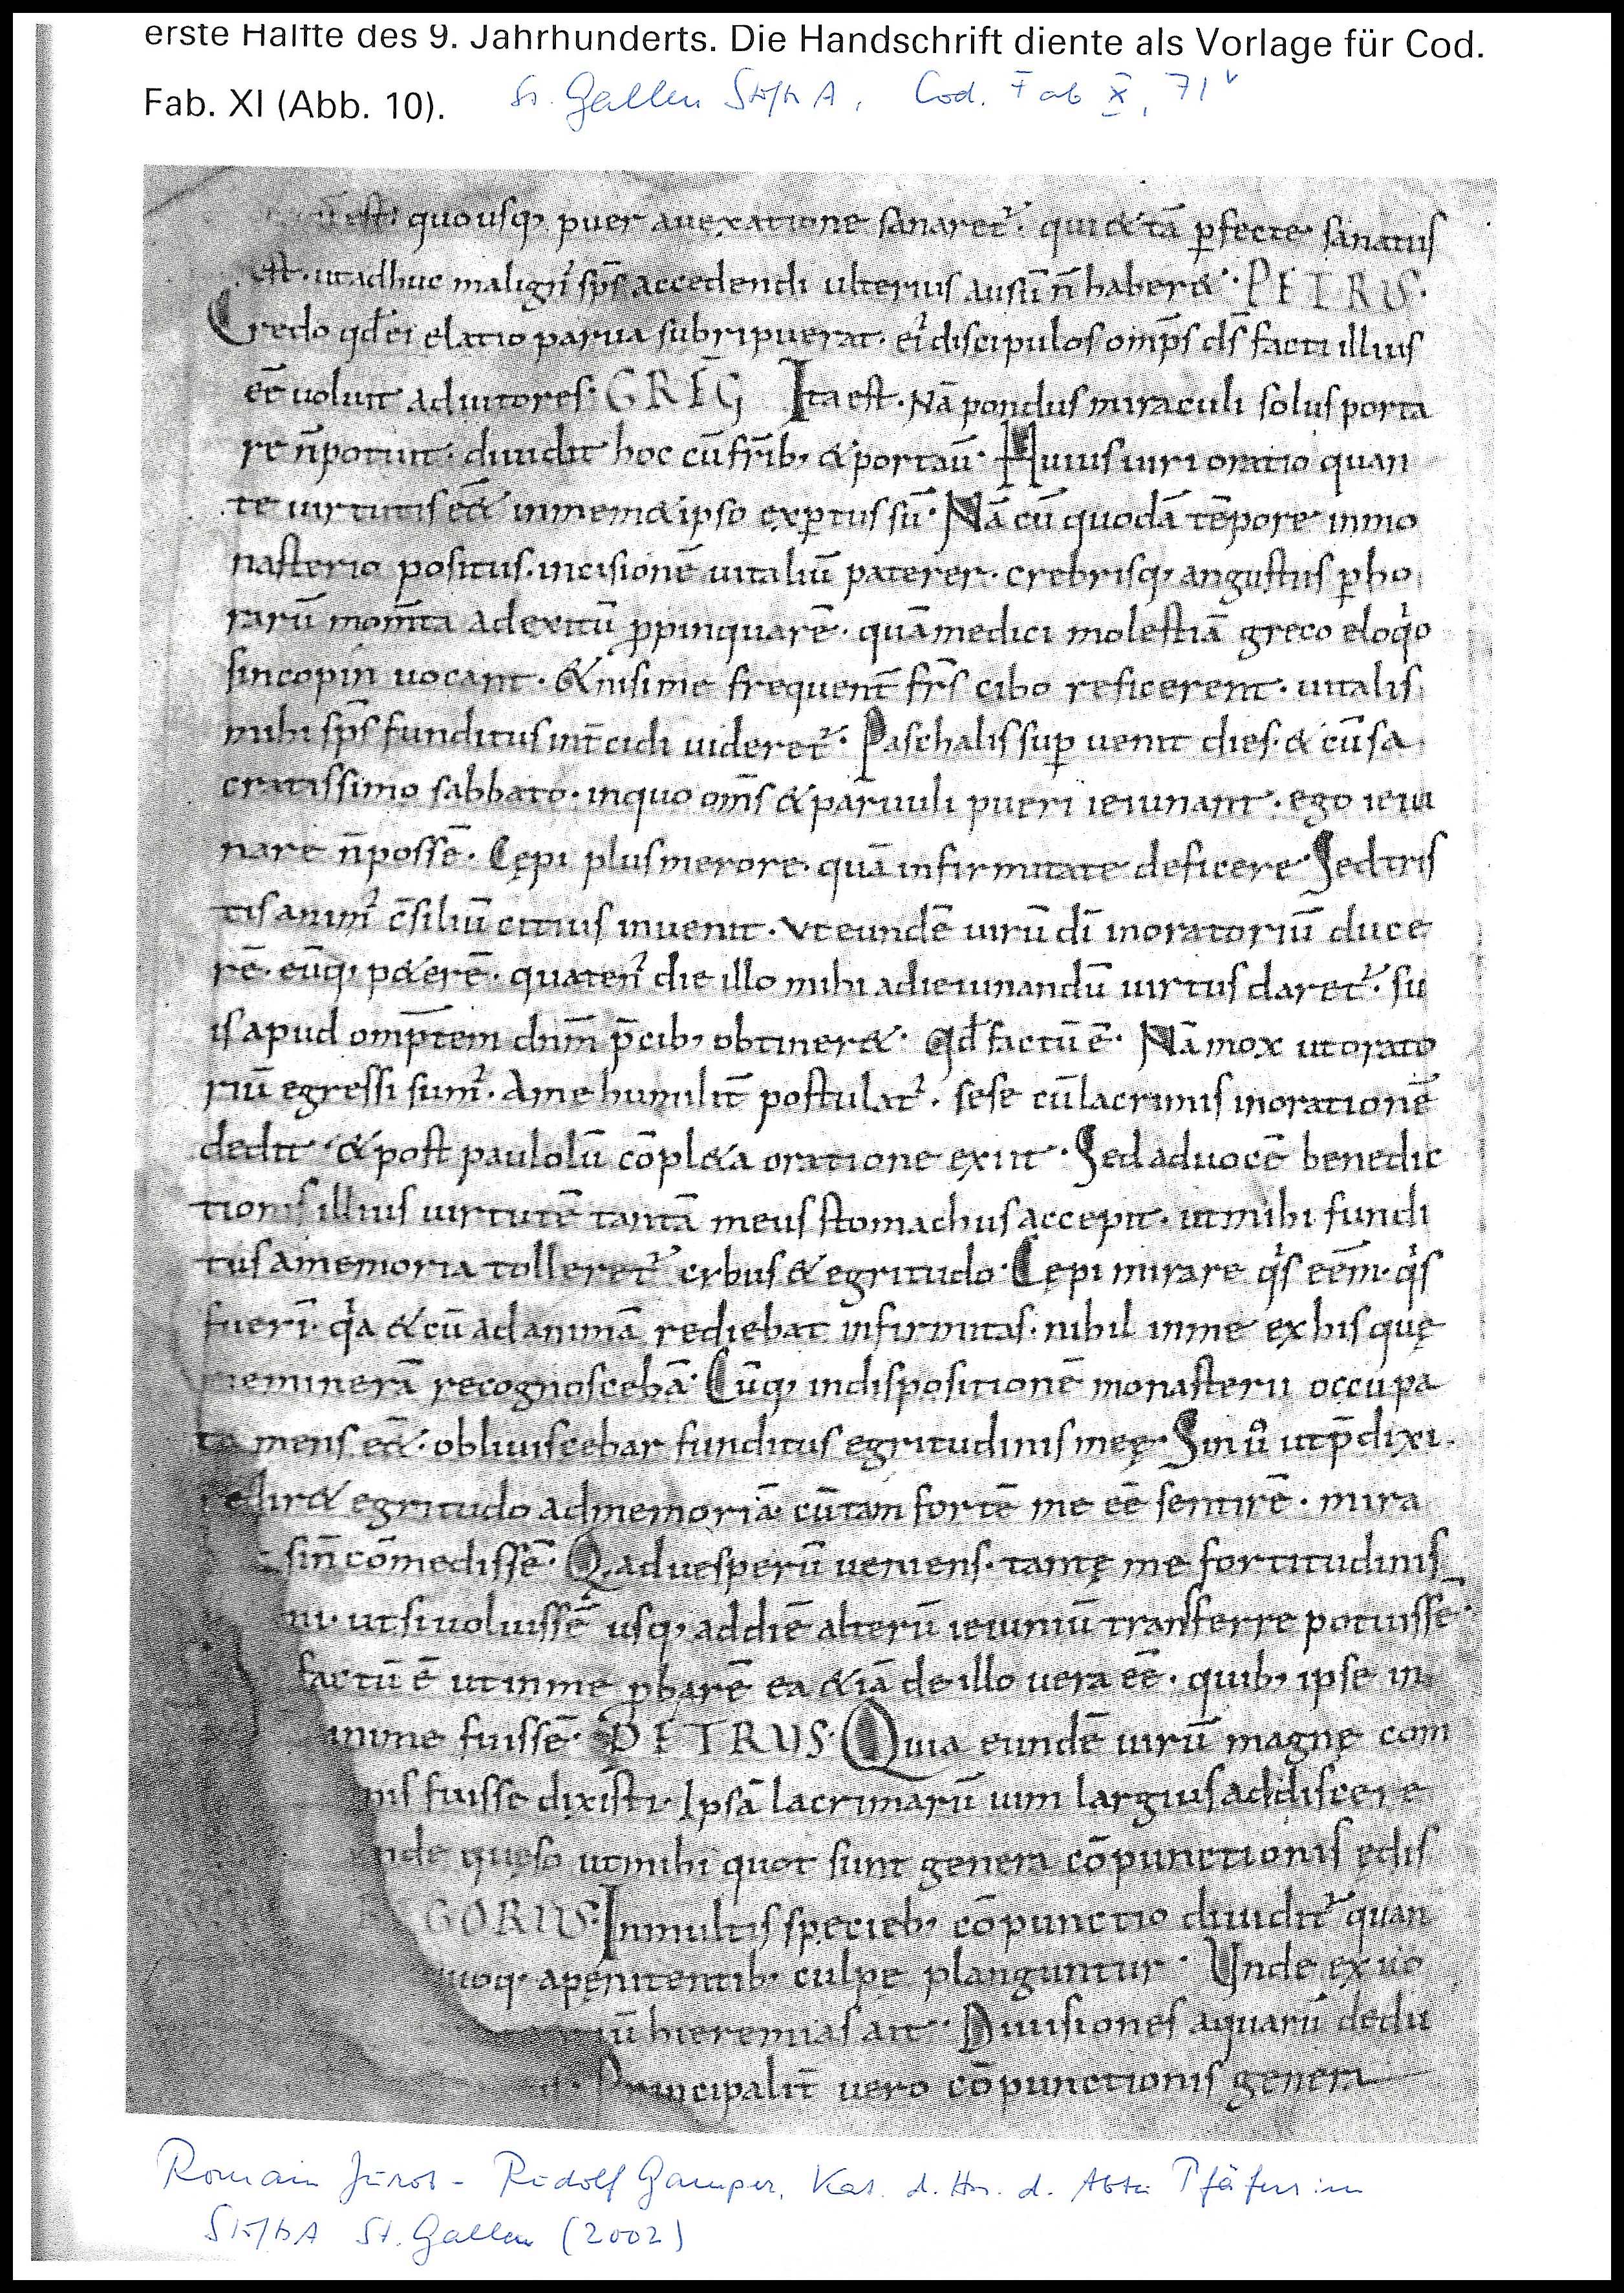 erste Hälfte des 9. Jahrhunderts. Die Handschrift diente als Vorlage für Cod.
Fab. XI (Abb. 10).
St. Gallen StiftsA, Cod. Fab X, 71v
est· quousq; puer auexatione sanaret᷒· qui &tā ꝑfecte· sanatus
est· utadhuc malign᷒ sp̄s accedendi ulterius ausū n̄ haber&· PETRUS·
Credo qđei elatio parua subripuerat· ei᷒ discipulos omp̄s ds̄ facti illius
eē uoluit adiutores· GREḠ Ita est· Nā pondus miraculi solus porta
re n̄potuit· diuidit hoc cū fr̄ib; &portaū· Huius uiri oratio quan
te uirtutis eē& inmem&ipso exꝑtus sū· Nā cū quodā tēpore inmo
nasterio positus· incisionē uitaliū paterer· crebrisq; angustiis ꝑho
rarū mom̄ta adexitū ꝓpinquarē· quā medici molestiā greco eloqͥo
sincopin uocant· & nisime frequent̄ fr̄s cibo reficerent· uitalis
mihi sp̄s funditus int̄cidi uideret᷒· Paschalis suꝑ uenit dies· & cū sa
cratissimo sabbato· inquo om̄s & paruuli pueri ieiunant· ego ieiu
nare n̄possē· Cępi plus merore· quā infirmitate deficere· Sed tris
tis anim᷒ c̄siliū citius inuenit· vt eundē uirū dī inoratoriū duce
rē· eūq; p&erē· quaten᷒ die illo mihi adieiunandū uirtus daret᷒· su
is apud omp̄tem dn̄m p̄cib; obtiner&· Qđ factū ē· Nā mox ut orato
riū egressi sum᷒· Ame humilit̄ postulat᷒· sese cū lacrimis inorationē
dedit· & post paulolū cōpl&a oratione exiit· Sed aduocē benedic
tionis illius uirtutē tantā meus stomachus accepit· ut mihi fundi
tus amemoria tolleret᷒ cybus & egritudo· Cępi mirare qͥs eēm· qͥs
fuerī· qͥa & cū ad animā rediebat infirmitas· nihil inme exhis quę
meminerā recognoscebā· Cūq; indispositionē monasterii occupa
ta mens eē&· obliuiscebar funditus egritudinis meę· Sin ů ut p̄dixi·
redir& egritudo admemoriā· cū tam fortē me eē sentirē· mira
sin̄ cōmedissē· Q aduesperū ueniens· tantę me fortitudinis
ni· ut si uoluissē usq; addiē alterū ieiuniū transferre potuissē·
factū ē ut inme ꝓbarē ea &iā de illo uera eē· quib; ipse in
mime fuissē· PETRUS· Quia eundē uirū magnę com
nis fuisse dixisti· Ipsā lacrimarū uim largius addiscere
nde quęso ut mihi quot sunt genera cōpunctionis ędis
GORIUS· Inmultis specieb; cōpunctio diuidit᷒ quan
uoq; apenitentib; culpe planguntur· Unde ex uo
iū hieremias ait· Diuisiones aquarū dedu
Principalit̄ uero cōpunctionis genera
Romain Jurot – Rudolf Gamper, Kat. d. Hss. d. Abtei Pfäfers im
StiftsA St. Gallen (2002)